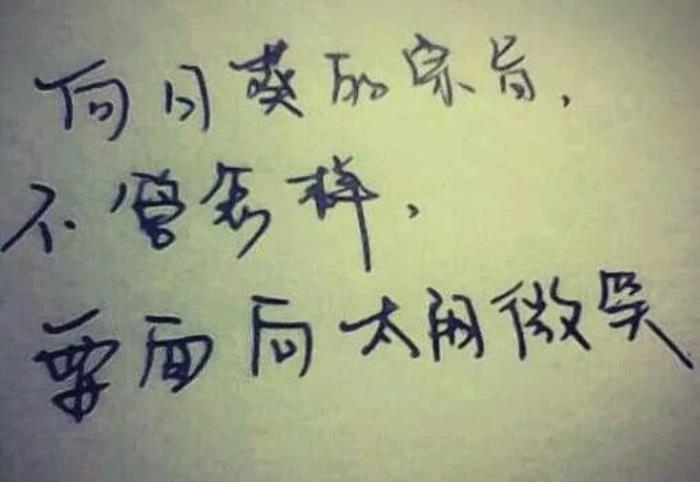 向日葵的宗旨,
不管怎样,
要面向太阳微笑